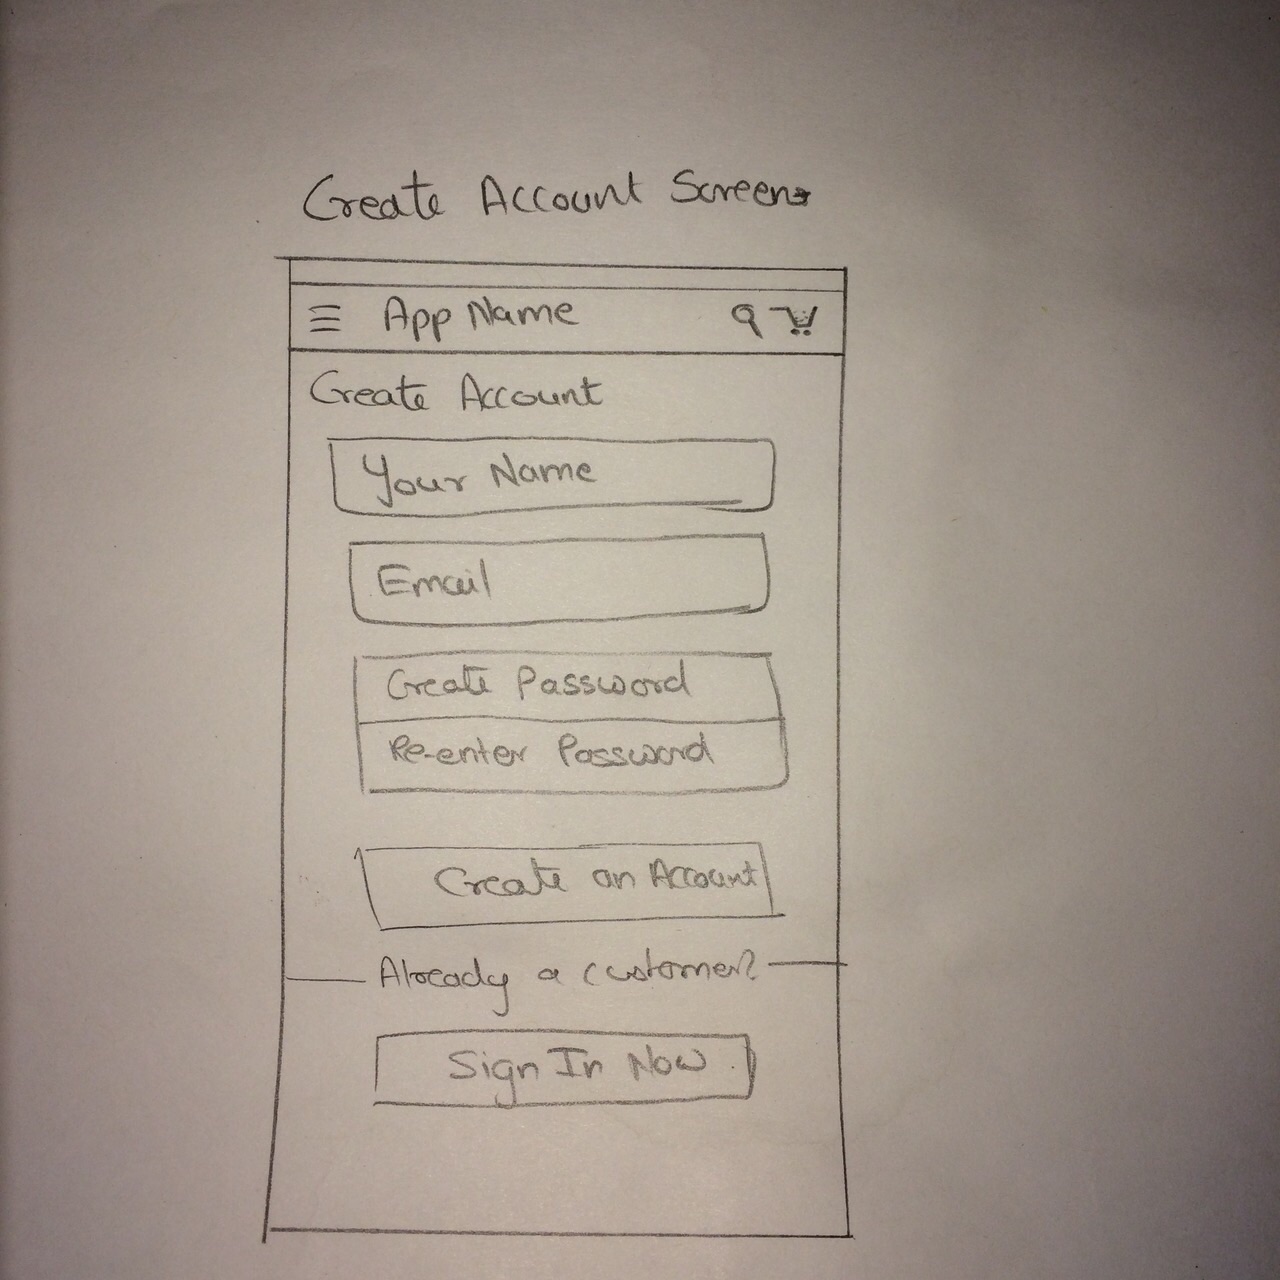 Create Account Screen
App Name
Create Account
Your Name
Email
Create Password
Re-enter Password
Create an Account
Already a customer?
Sign In Now